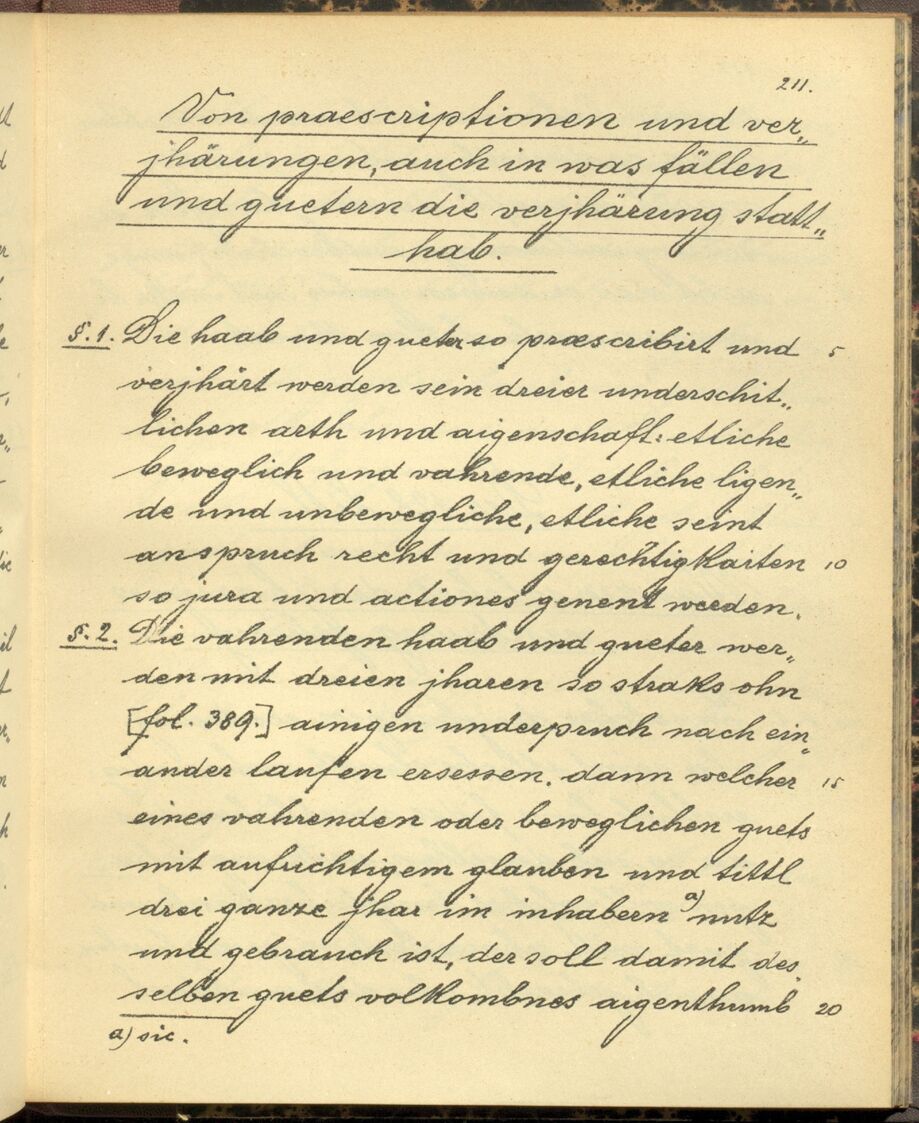 211.
Von praescriptionen und ver„
jhärungen, auch in was fällen
und guetern die verjhärung statt„
hab.
§. 1. Die haab und gueter so præscribirt und 5
verjhärt werden sein dreier underschit„
lichen arth und aigenschaft: etliche
beweglich und vahrende, etliche ligen„
de und unbewegliche, etliche seint
anspruch recht und gerechtigkaiten 10
so jura und actiones genent werden.
§. 2. Die vahrenden haab und gueter wer„
den mit dreien jharen so straks ohn
[fol. 389.] ainigen underpruch nach ein„
ander laufen ersessen. dann welcher 15
eines vahrenden oder beweglichen guets
mit aufrichtigem glauben und tittl
drei ganze jhar im inhabern a) nutz
und gebrauch ist, der soll damit des„
selben guets volkombnes aigenthumb 20
a) sic.